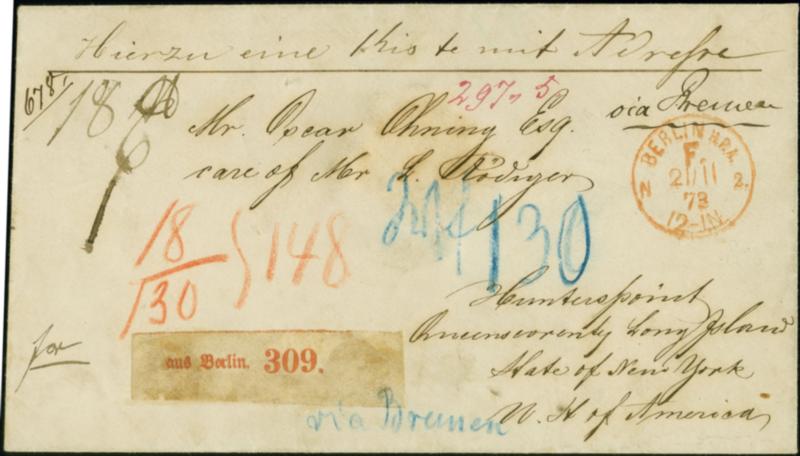 Hierzu eine Kiste mit Adresse
678/
18
297, 5
via Bremen
Mr. Oscar Ohning Esq.
care of Mr L. Rödiger
BERLIN H.P.A.
F.
2 2/11 2.
73
12-1N
18
/30 } 148
130
Hunterspoint
Queenscounty Long Island
State of New York
U. St of America
for
aus Berlin. 309.
via Bremen